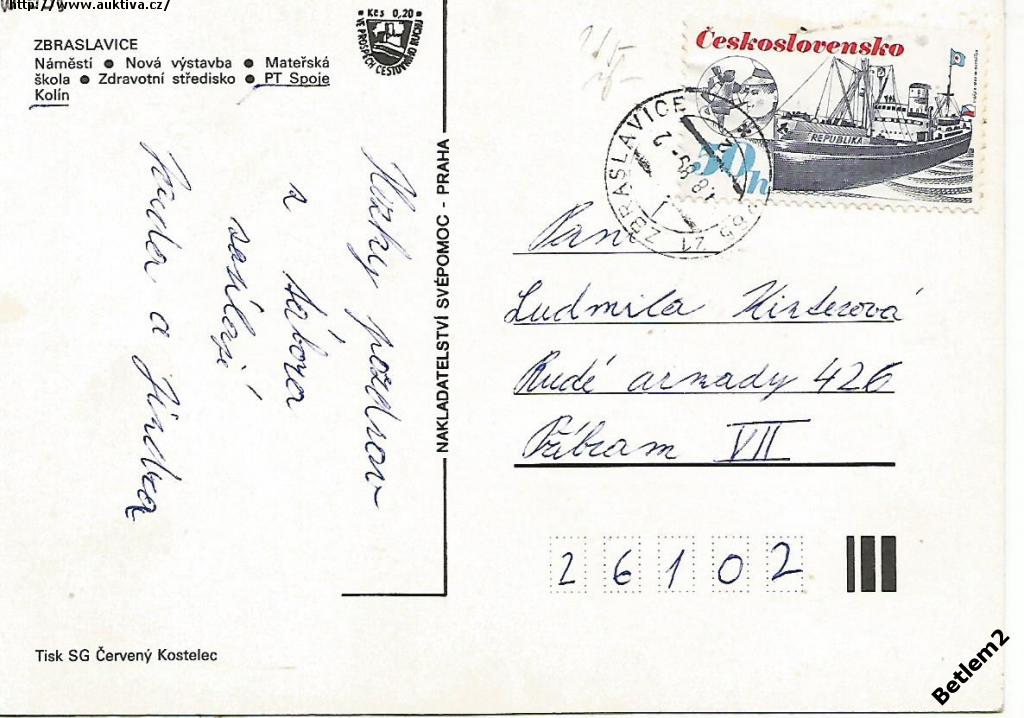 http://www.auktiva.cz/
Kčs 0,20
VE PROSPĚCH CESTOVNÍHO RUCHU
ZBRASLAVICE
Náměstí ● Nová výstavba ● Mateřská
škola ● Zdravotní středisko ● PT Spoje
Kolín
pozdrav
z tábora
zasílají
a Jindra
NAKLADATELSTVÍ SVÉPOMOC - PRAHA
Československo
REPUBLIKA
50h
ZBRASLAVICE
Paní
Ludmila
Rudé armady 426
Příbram VII
26102
Tisk SG Červený Kostelec
Betlem2